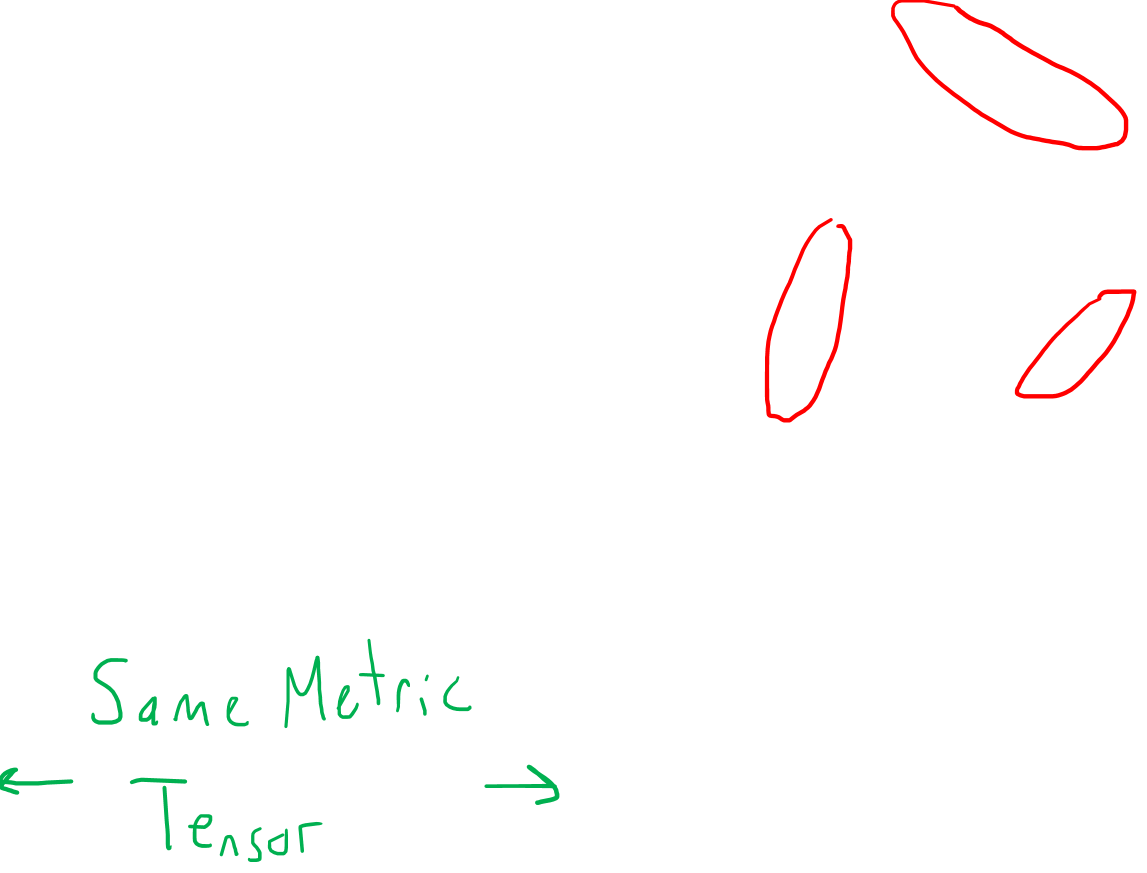 Same Metric
Tensor